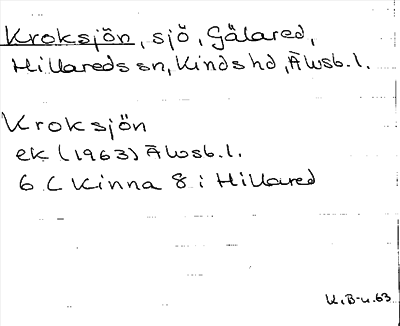 Kroksjön, sjö, Gålared,
Hillareds sn, Kinds hd, Älvsb. l.
Kroksjön
ek (1963) Älvsb. l.
6 C Kinna 8 i Hillared
K.B-u. 63